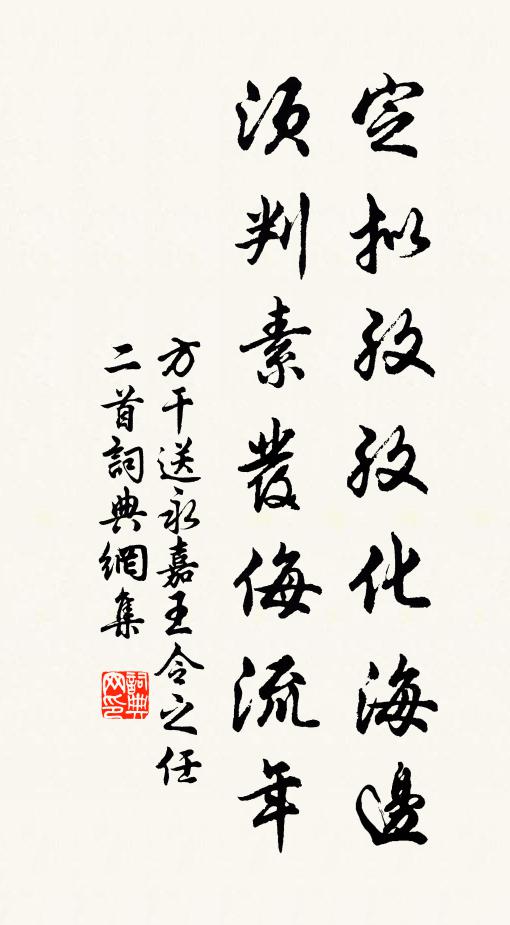 定拟孜孜化海邊
須判素發侮流年
方干送永嘉王令之任
二首詞典網集
詞典
网印